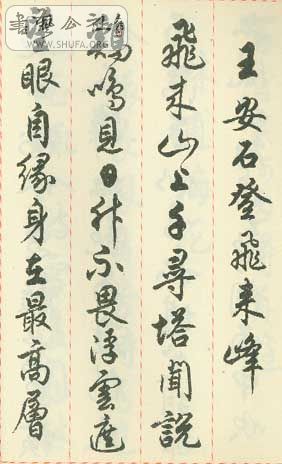 王安石登飛来峰
飛来山上千尋塔聞説
鷄鳴見日升不畏浮雲遮
望眼自緣身在最高層
WWW.SHUFA.ORG